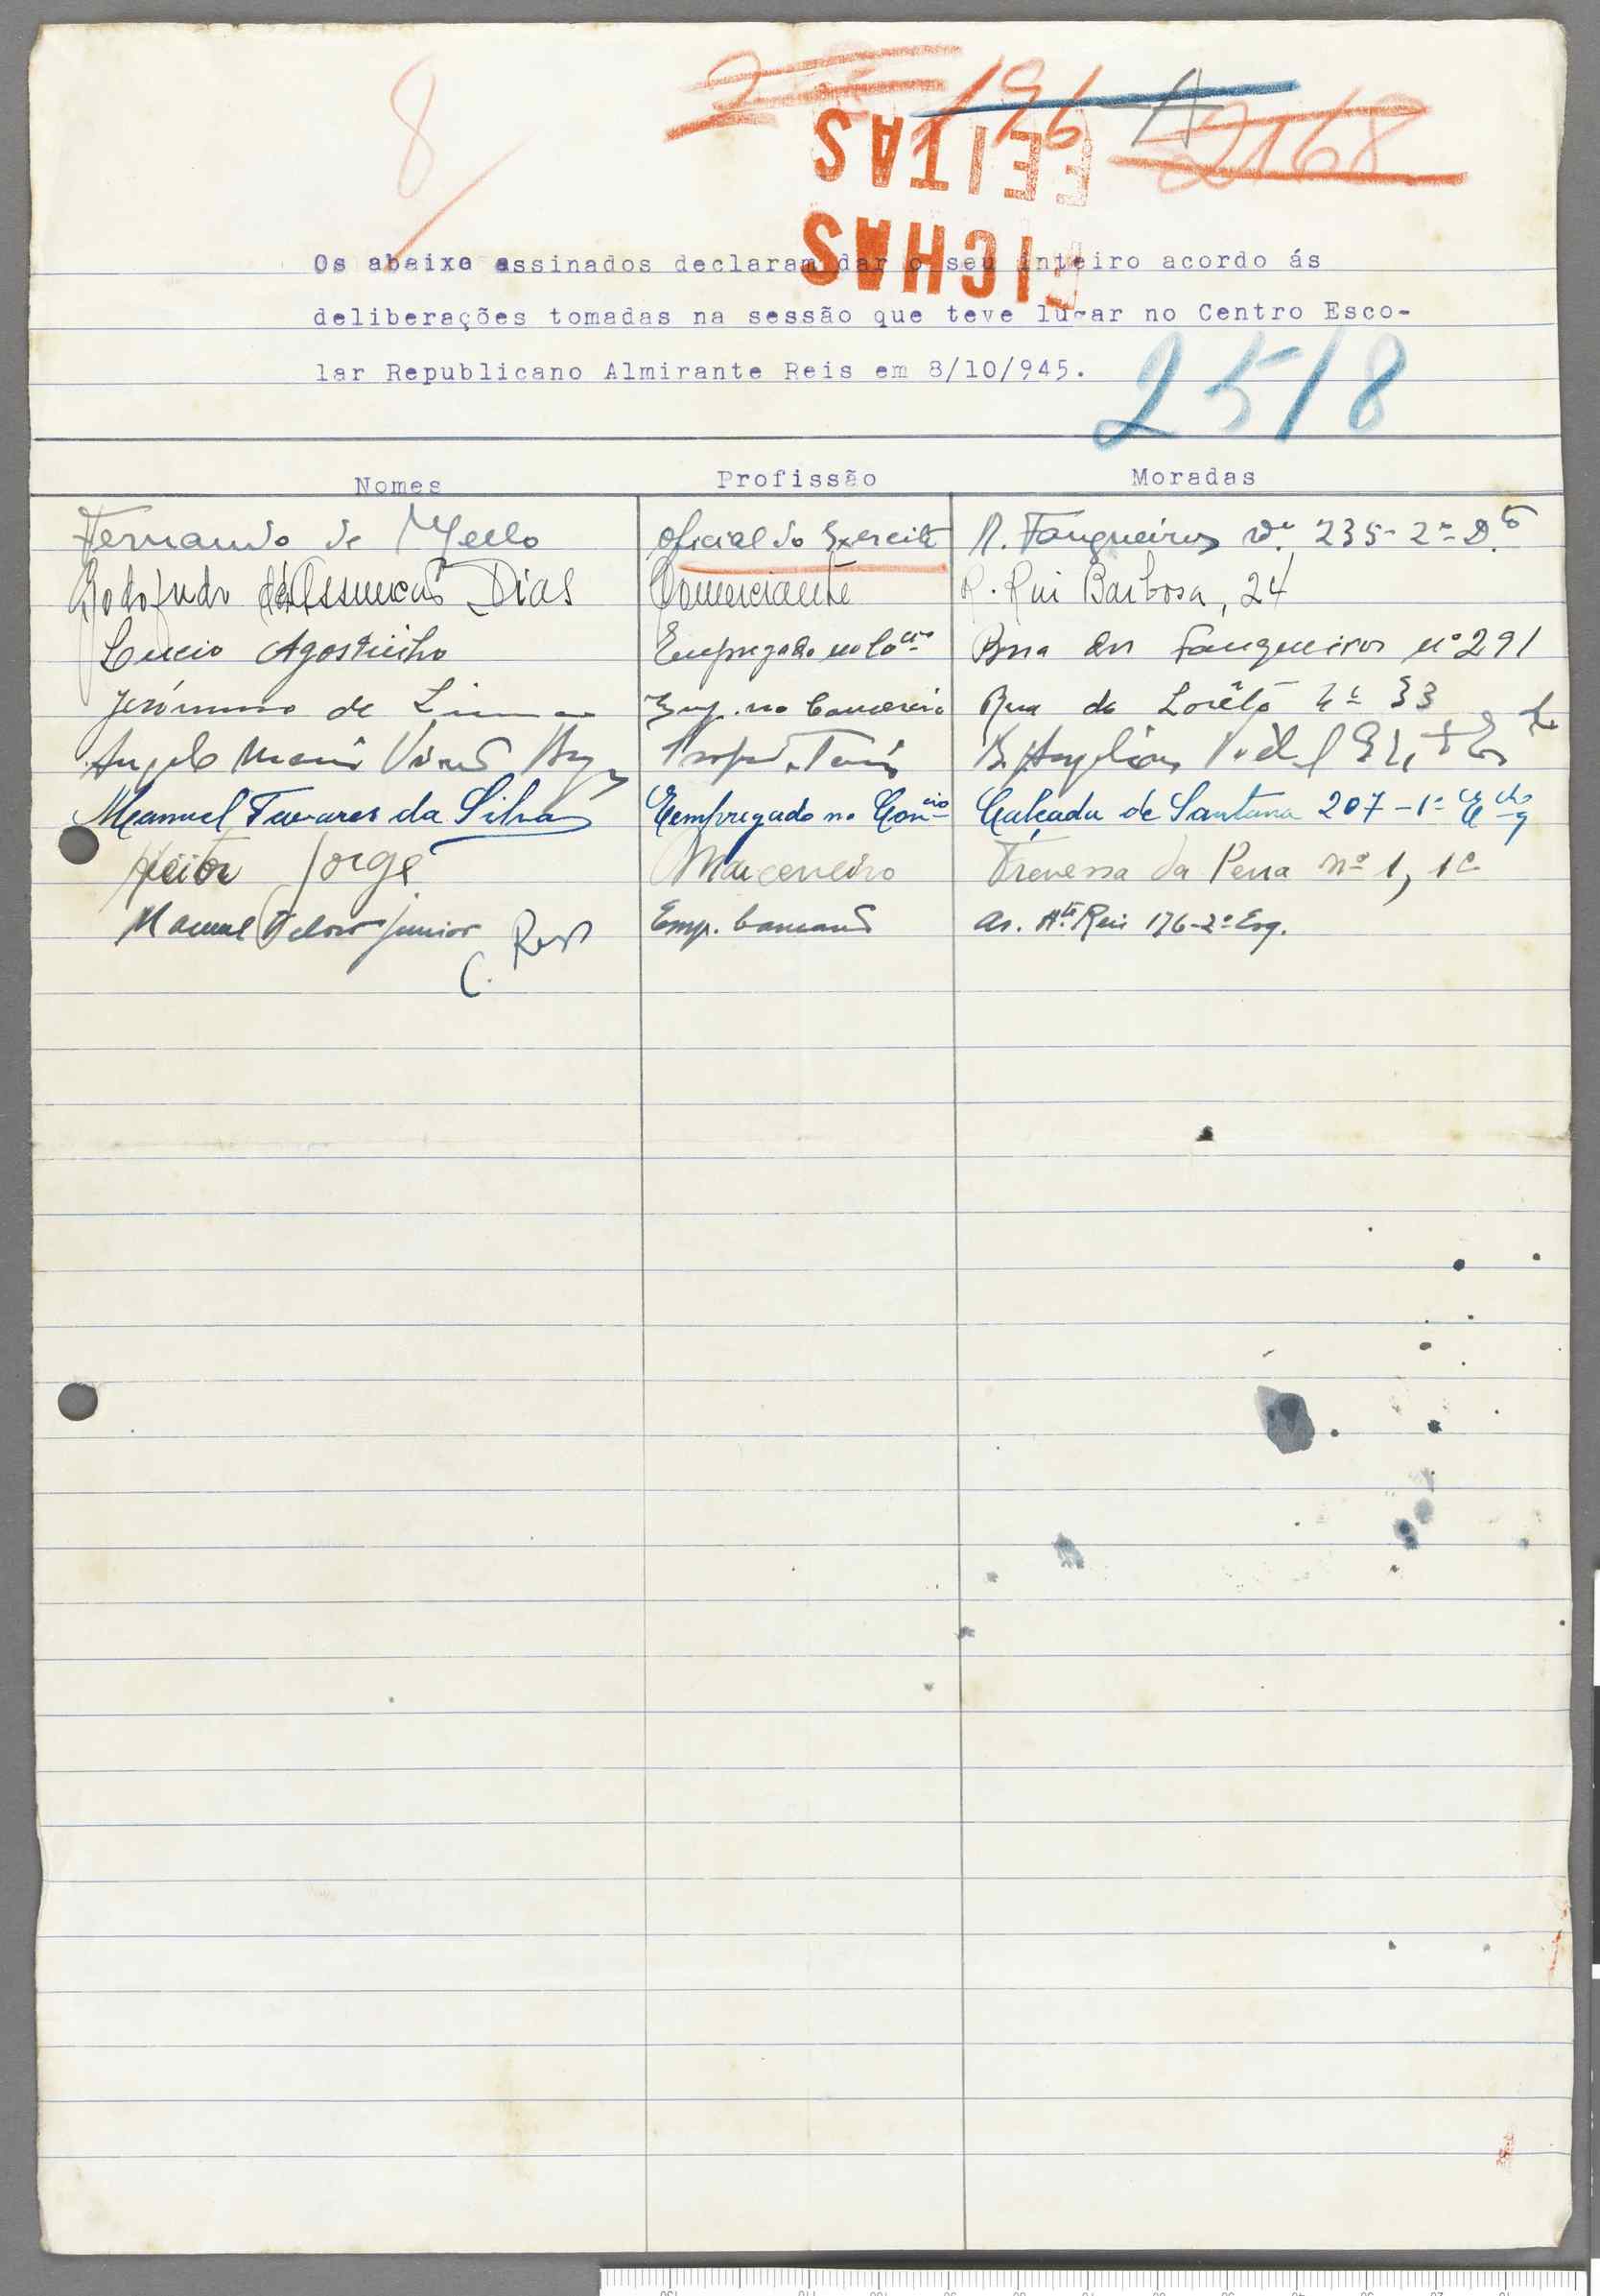 8
196 A 2168
FICHAS
FEITAS
Os abaixo assinados declaram dar o seu inteiro acordo ás
deliberações tomadas na sessão que teve lugar no Centro Esco-
lar Republicano Almirante Reis em 8/10/945.
2518
Nomes Profissão Moradas
Fernando de Mello Oficial do Exercito R. Fanqueiros Nº 235-2º D.to
Dias Comerciante R. Rui Barbosa, 24
Lucio Agostinho Empregado no Cocio Rua dos Fanqueiros nº 291
Jerónimo de Emp. no Comercio Rua do Lorêto nº 33
Angelo
Manuel Tavares da Silva Eempregado no Comcio Calçada de Santana 207-1º
Heitor Jorge Marceneiro Travessa da Pena nº 1, 1º
Manuel Junior Emp. Av. Reis 176-2º Esq.
C.